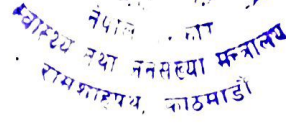 नेपाल
स्वास्थ्य तथा जनसंख्या मन्त्रालय
रामशाहपथ, काठमाडौं